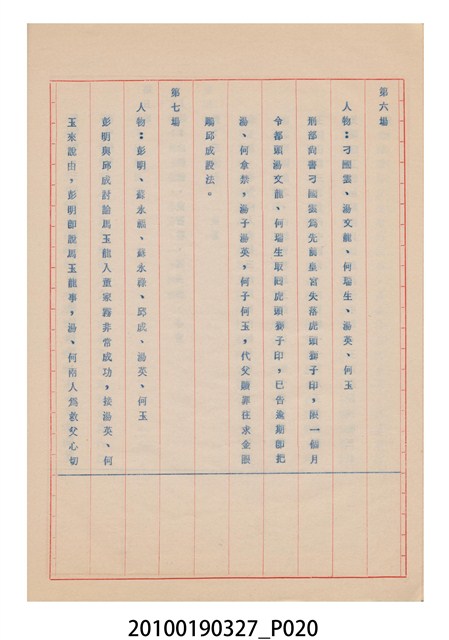 第六場
人物：刁國雲、湯文龍、何瑞生、湯英、何玉
刑部尚書刁國雲為先朝皇宮失落虎頭獅子印，限一個月
令都頭湯文龍、何瑞生取回虎頭獅子印，已告逾期即把
湯、何拿禁，湯子湯英，何子何玉，代父贖罪往求金眼
鵰邱成設法。
第七場
人物：彭明、蘇永福、蘇永祿、邱成、湯英、何玉
彭明與邱成討論馬玉龍入童家寨非常成功，接湯英、何
玉來說由，彭明即說馬玉龍事，湯、何兩人為救父心切
20100190327_P020